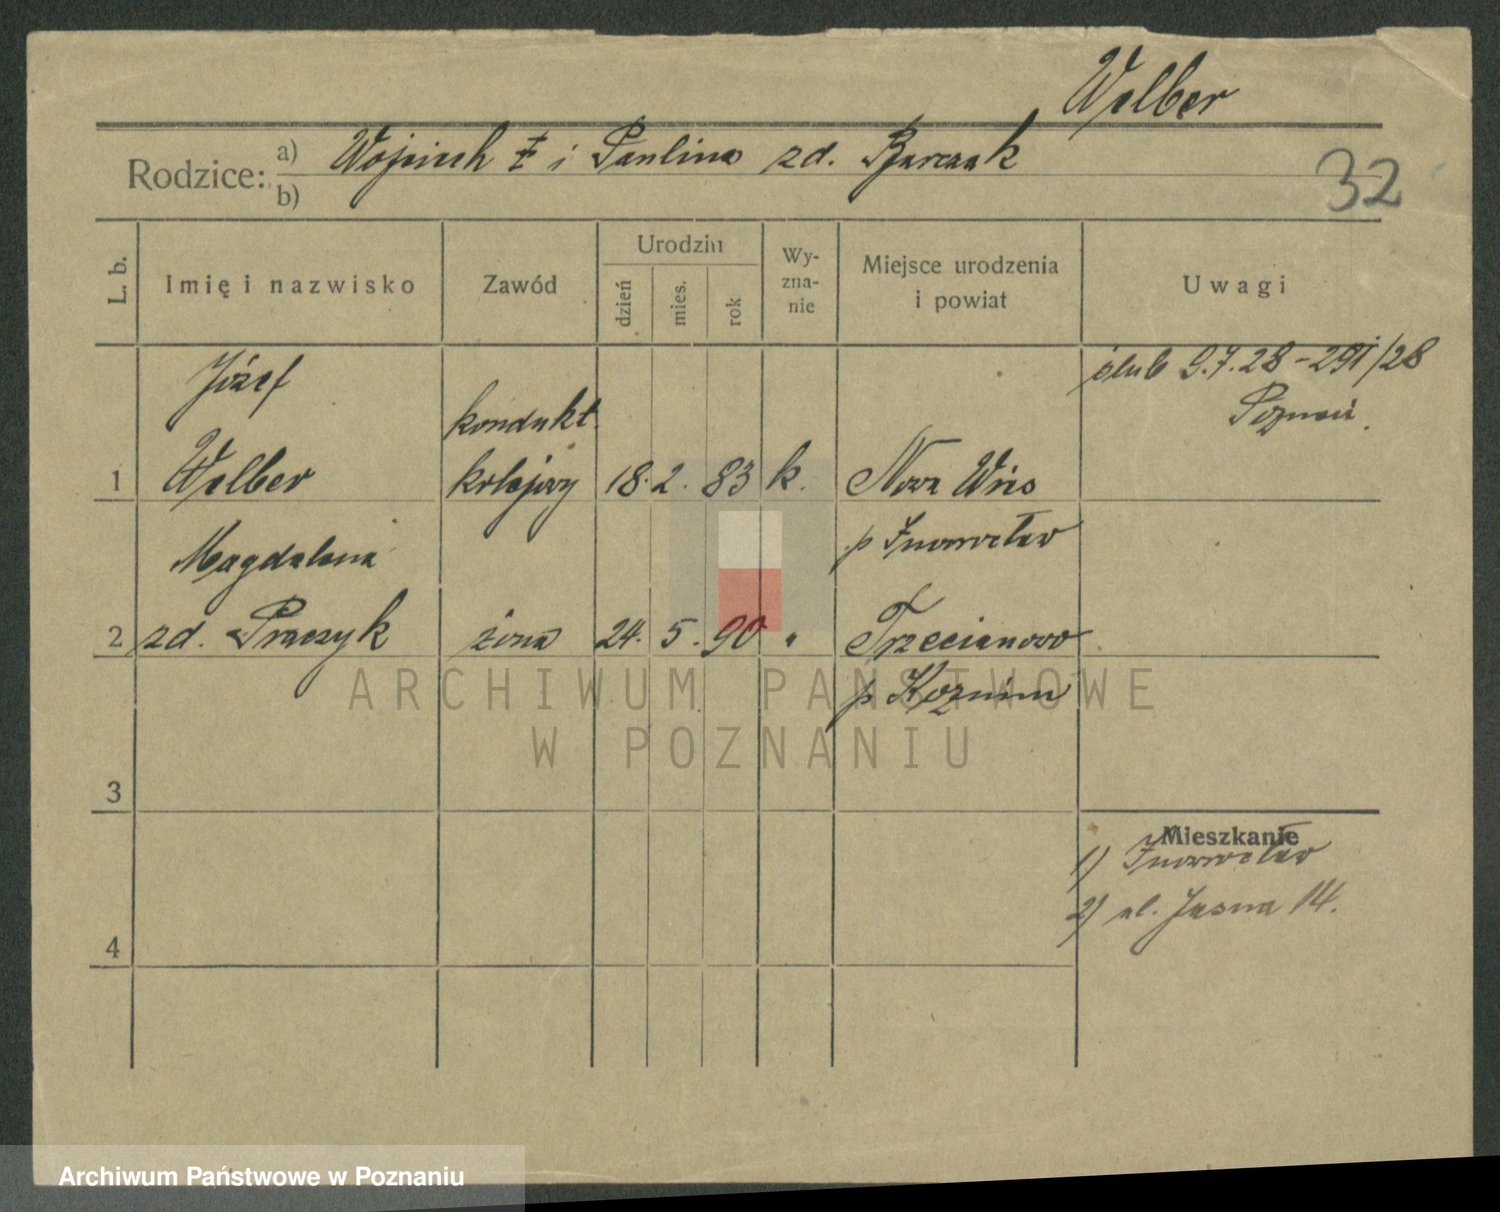 Welber
Rodzice:
a) Wojciech ‡ i Paulina zd. Barczak
b)
32
L. b.
Imię i nazwisko
Zawód
Urodzin
dzień
mies.
rok
Wy-
zna-
nie
Miejsce urodzenia
i powiat
Uwagi
Józef
kondukt.
ślub 9.7.28 - 291/28
Poznań.
1 Welber kolejowy 18. 2. 83 k. Nowa Wieś
p Inowrocław
Magdalena
2 zd. Praczyk żona 24. 5. 90 " Trzecianowo
p Koźmin
3
Mieszkanie
1) Inowrocław
2) ul. Jasna 14.
4
ARCHIWUM PAŃSTWOWE
W POZNANIU
Archiwum Państwowe w Poznaniu